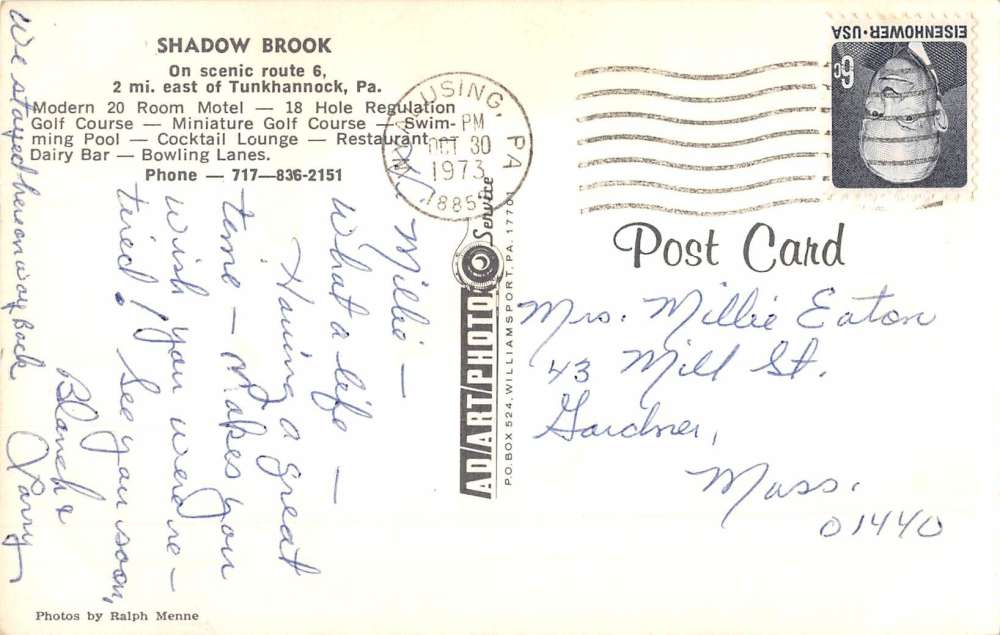 SHADOW BROOK
On scenic route 6,
2 mi. east of Tunkhannock, Pa.
Modern 20 Room Motel — 18 Hole Regulation
Golf Course — Miniature Golf Course — Swim-
ming Pool — Cocktail Lounge — Restaurant
Dairy Bar — Bowling Lanes.
Phone — 717—836-2151
We stayed here on way back
Millie —
What a life —
Having a great
time — Makes you
wish you were re-
tired! See you soon,
Blanch &
Larry
Photos by Ralph Menne
USING, PA
PM
OCT 30
1973
AD/ART/PHOTO Service
P.O. BOX 524, WILLIAMSPORT, PA. 17701
EISENHOWER·USA
6c
Post Card
Mrs. Millie Eaton
43 Mill St.
Gardner,
Mass.
01440